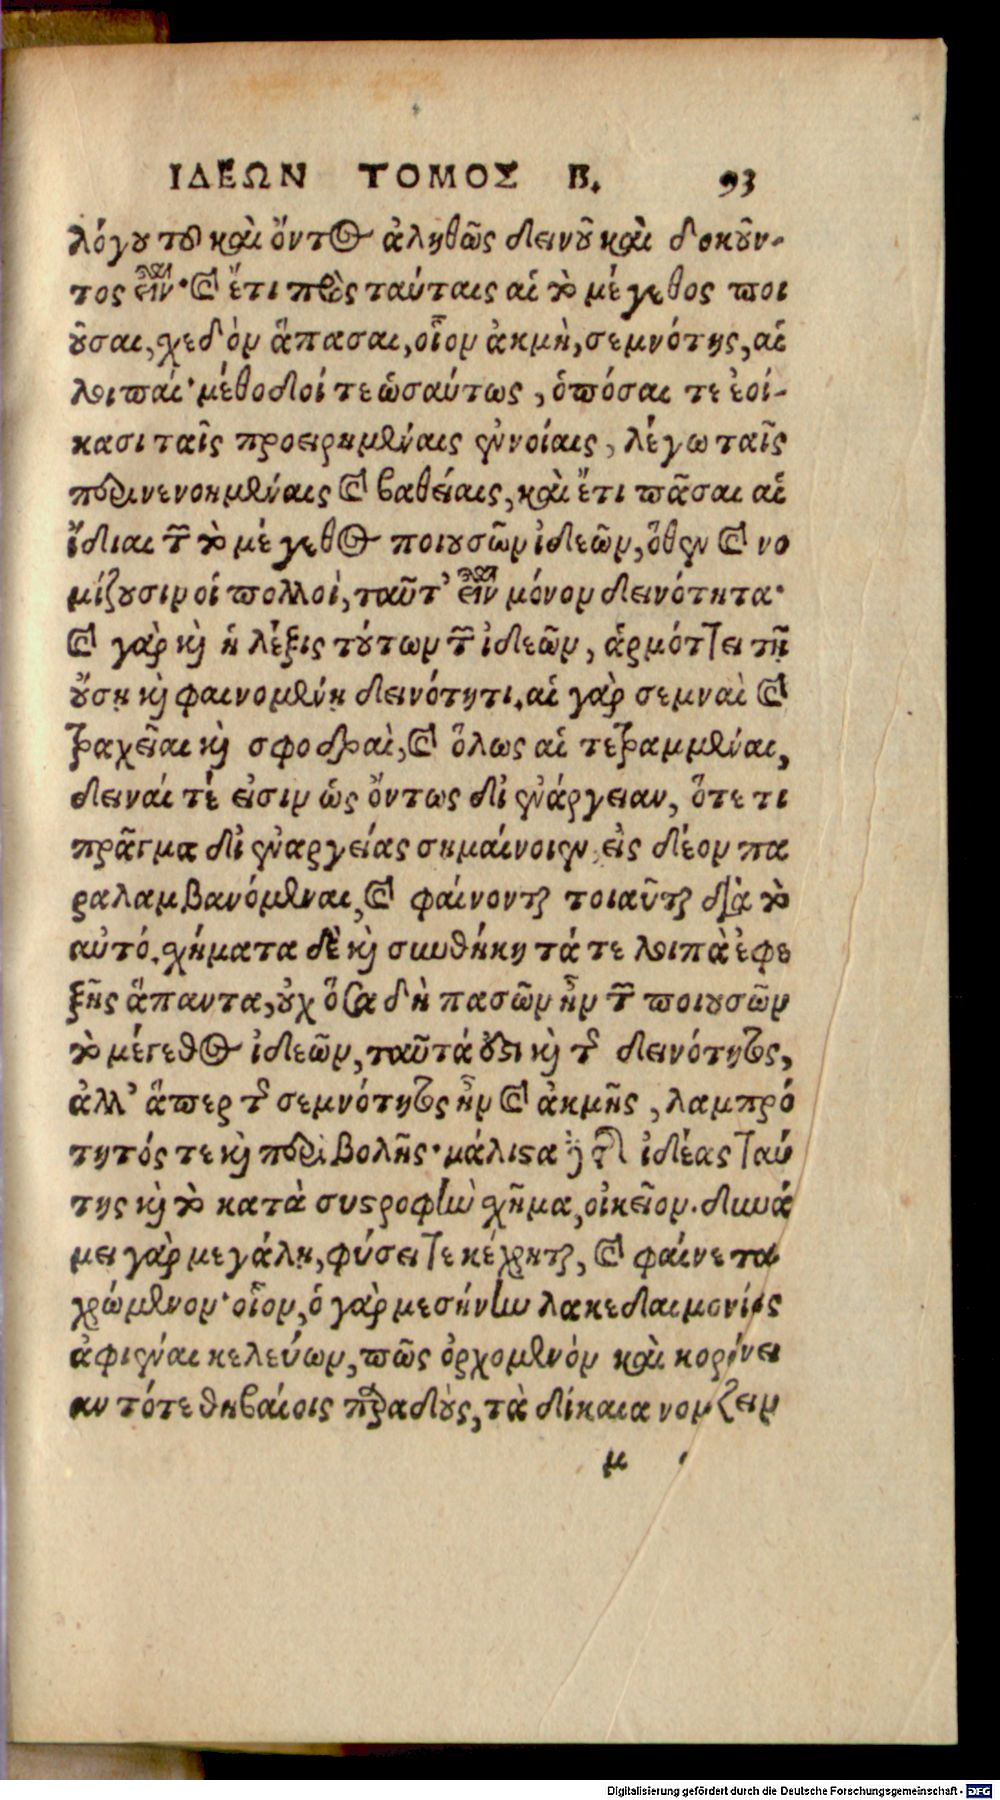 ΙΔΕΩΝ ΤΟΜΟΣ Β. 93
λόγου τοῦ καὶ ὄντος ἀληθῶς δεινοῦ καὶ δοκοῦν-
τος εἶναι· καὶ ἔτι πρὸς ταύταις αἱ τὸ μέγεθος ποι
οῦσαι, σχεδὸν ἅπασαι, οἷον ἀκμὴ, σεμνότης, αἱ
λοιπαί· μέθοδοί τε ὡσαύτως, ὁπόσαι τε ἐοί-
κασι ταῖς προειρημέναις ἐννοίαις, λέγω ταῖς
περινενοημέναις καὶ βαθείαις, καὶ ἔτι πᾶσαι αἱ
ἴδιαι τῶν τὸ μέγεθος ποιουσῶν ἰδεῶν, ὅθεν καὶ νο
μίζουσιν οἱ πολλοὶ, ταῦτ' εἶναι μόνον δεινότητα·
καὶ γὰρ καὶ ἡ λέξις τούτων τῶν ἰδεῶν, ἁρμόττει τῇ
οὔσῃ καὶ φαινομένῃ δεινότητι. αἱ γὰρ σεμναὶ καὶ
τραχεῖαι καὶ σφοδραὶ, καὶ ὅλως αἱ τετραμμέναι,
δειναί τέ εἰσιν ὡς ὄντως δι' ἐνάργειαν, ὅτε τι
πρᾶγμα δι' ἐναργείας σημαίνοιεν εἰς δέον πα
ραλαμβανόμεναι, καὶ φαίνονται τοιαῦται διὰ τὸ
αὐτό. σχήματα δὲ καὶ συνθήκη τά τε λοιπὰ ἐφε
ξῆς ἅπαντα, οὐχ ὅσα δὴ πασῶν ἦν τῶν ποιουσῶν
τὸ μέγεθος ἰδεῶν, ταῦτά ἐστι καὶ τῆς δεινότητος,
ἀλλ' ἅπερ τῆς σεμνότητος ἦν καὶ ἀκμῆς, λαμπρό
τητός τε καὶ περιβολῆς· μάλιστα ἰδέας ταύ
της καὶ τὸ κατὰ συστροφὴν σχῆμα, οἰκεῖον. δυνά
μει γὰρ μεγάλῃ, φύσει τε κέχρηται, καὶ φαίνεται
χρώμενον· οἷον, ὁ γὰρ μεσήνην λακεδαιμονίους
ἀφιέναι κελεύων, πῶς ὀρχομενὸν καὶ κορώνει
αν τότε θηβαίοις παραδοὺς, τὰ δίκαια νομίζειν
μ
Digitalisierung gefördert durch die Deutsche Forschungsgemeinschaft - DFG